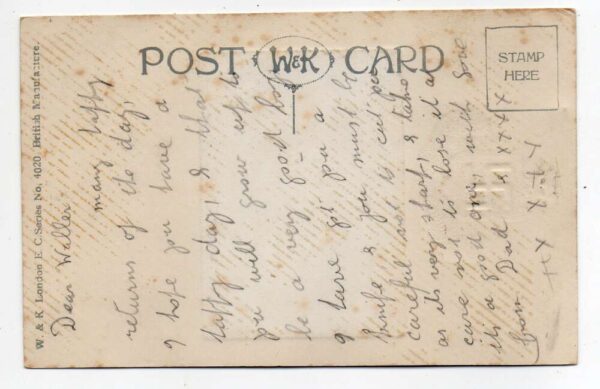 POST W&K CARD
STAMP
HERE
W. & K. London E. C. Series No. 4020 British Manufacture.
Dear Willer
many happy
returns of the day,
I hope you have a
happy day, & that
you will grow up to
be a very good boy
I have got you a
knife & you must be
careful not to cut you
as its very sharp, & take
care not to lose it as
its a good one, with love
from Dad xxxxx
xxx xxx